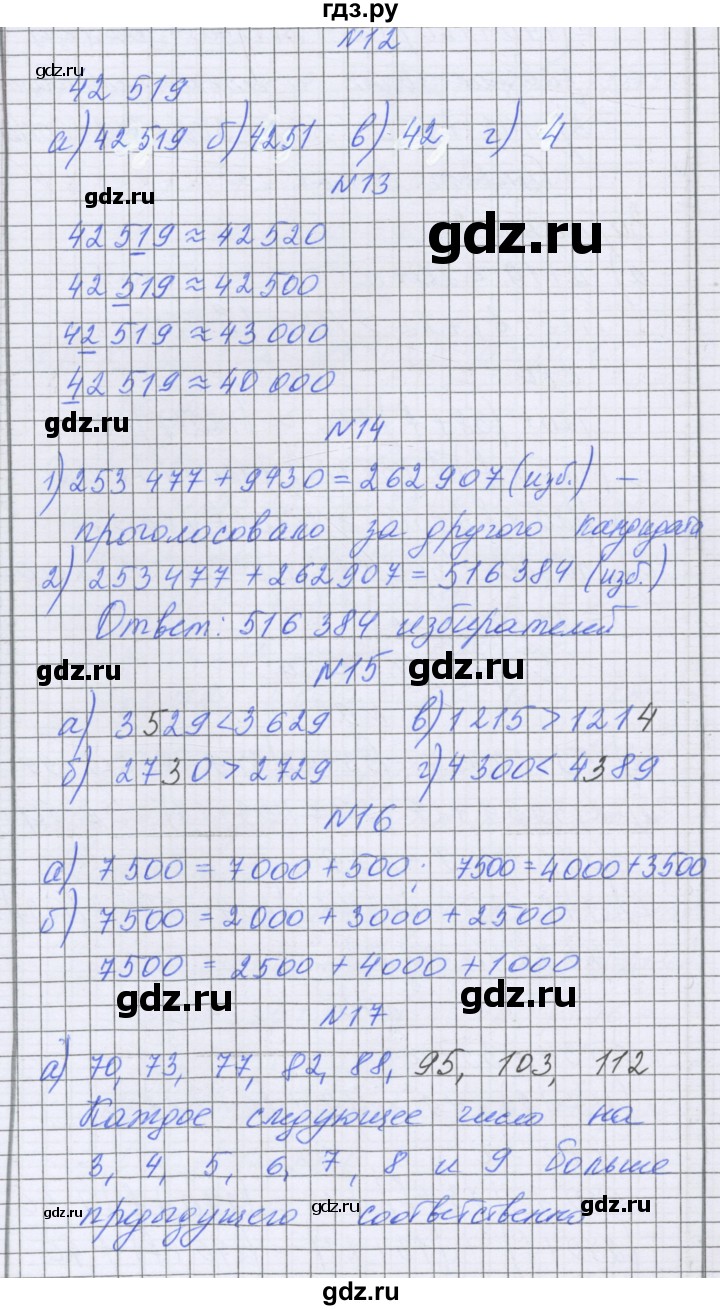 гдз.ру
N12
gdz.ru
42 519
а) 42 519 б) 4251 в) 42 г) 4
gdz.ru
N13
42 519 ≈ 42 520
gdz.ru
42 519 ≈ 42 500
42 519 ≈ 43 000
42 519 ≈ 40 000
gdz.ru
N14
1) 253 477 + 9430 = 262 907 (изб.) –
проголосовало за другого кандидата
2) 253 477 + 262 907 = 516 384 (изб.)
Ответ: 516 384 избирателей
gdz.ru gdz.ru
N15
а) 3529 < 3629 в) 1215 > 1214
б) 2730 > 2729 г) 4300 < 4389
N16
а) 7500 = 7000 + 500; 7500 = 4000 + 3500
б) 7500 = 2000 + 3000 + 2500
7500 = 2500 + 4000 + 1000
gdz.ru gdz.ru
N17
а) 70, 73, 77, 82, 88, 95, 103, 112
Каждое следующее число на
3, 4, 5, 6, 7, 8 и 9 больше
предыдущего соответственно
gdz.ru gdz.ru gdz.ru
gdz.ru